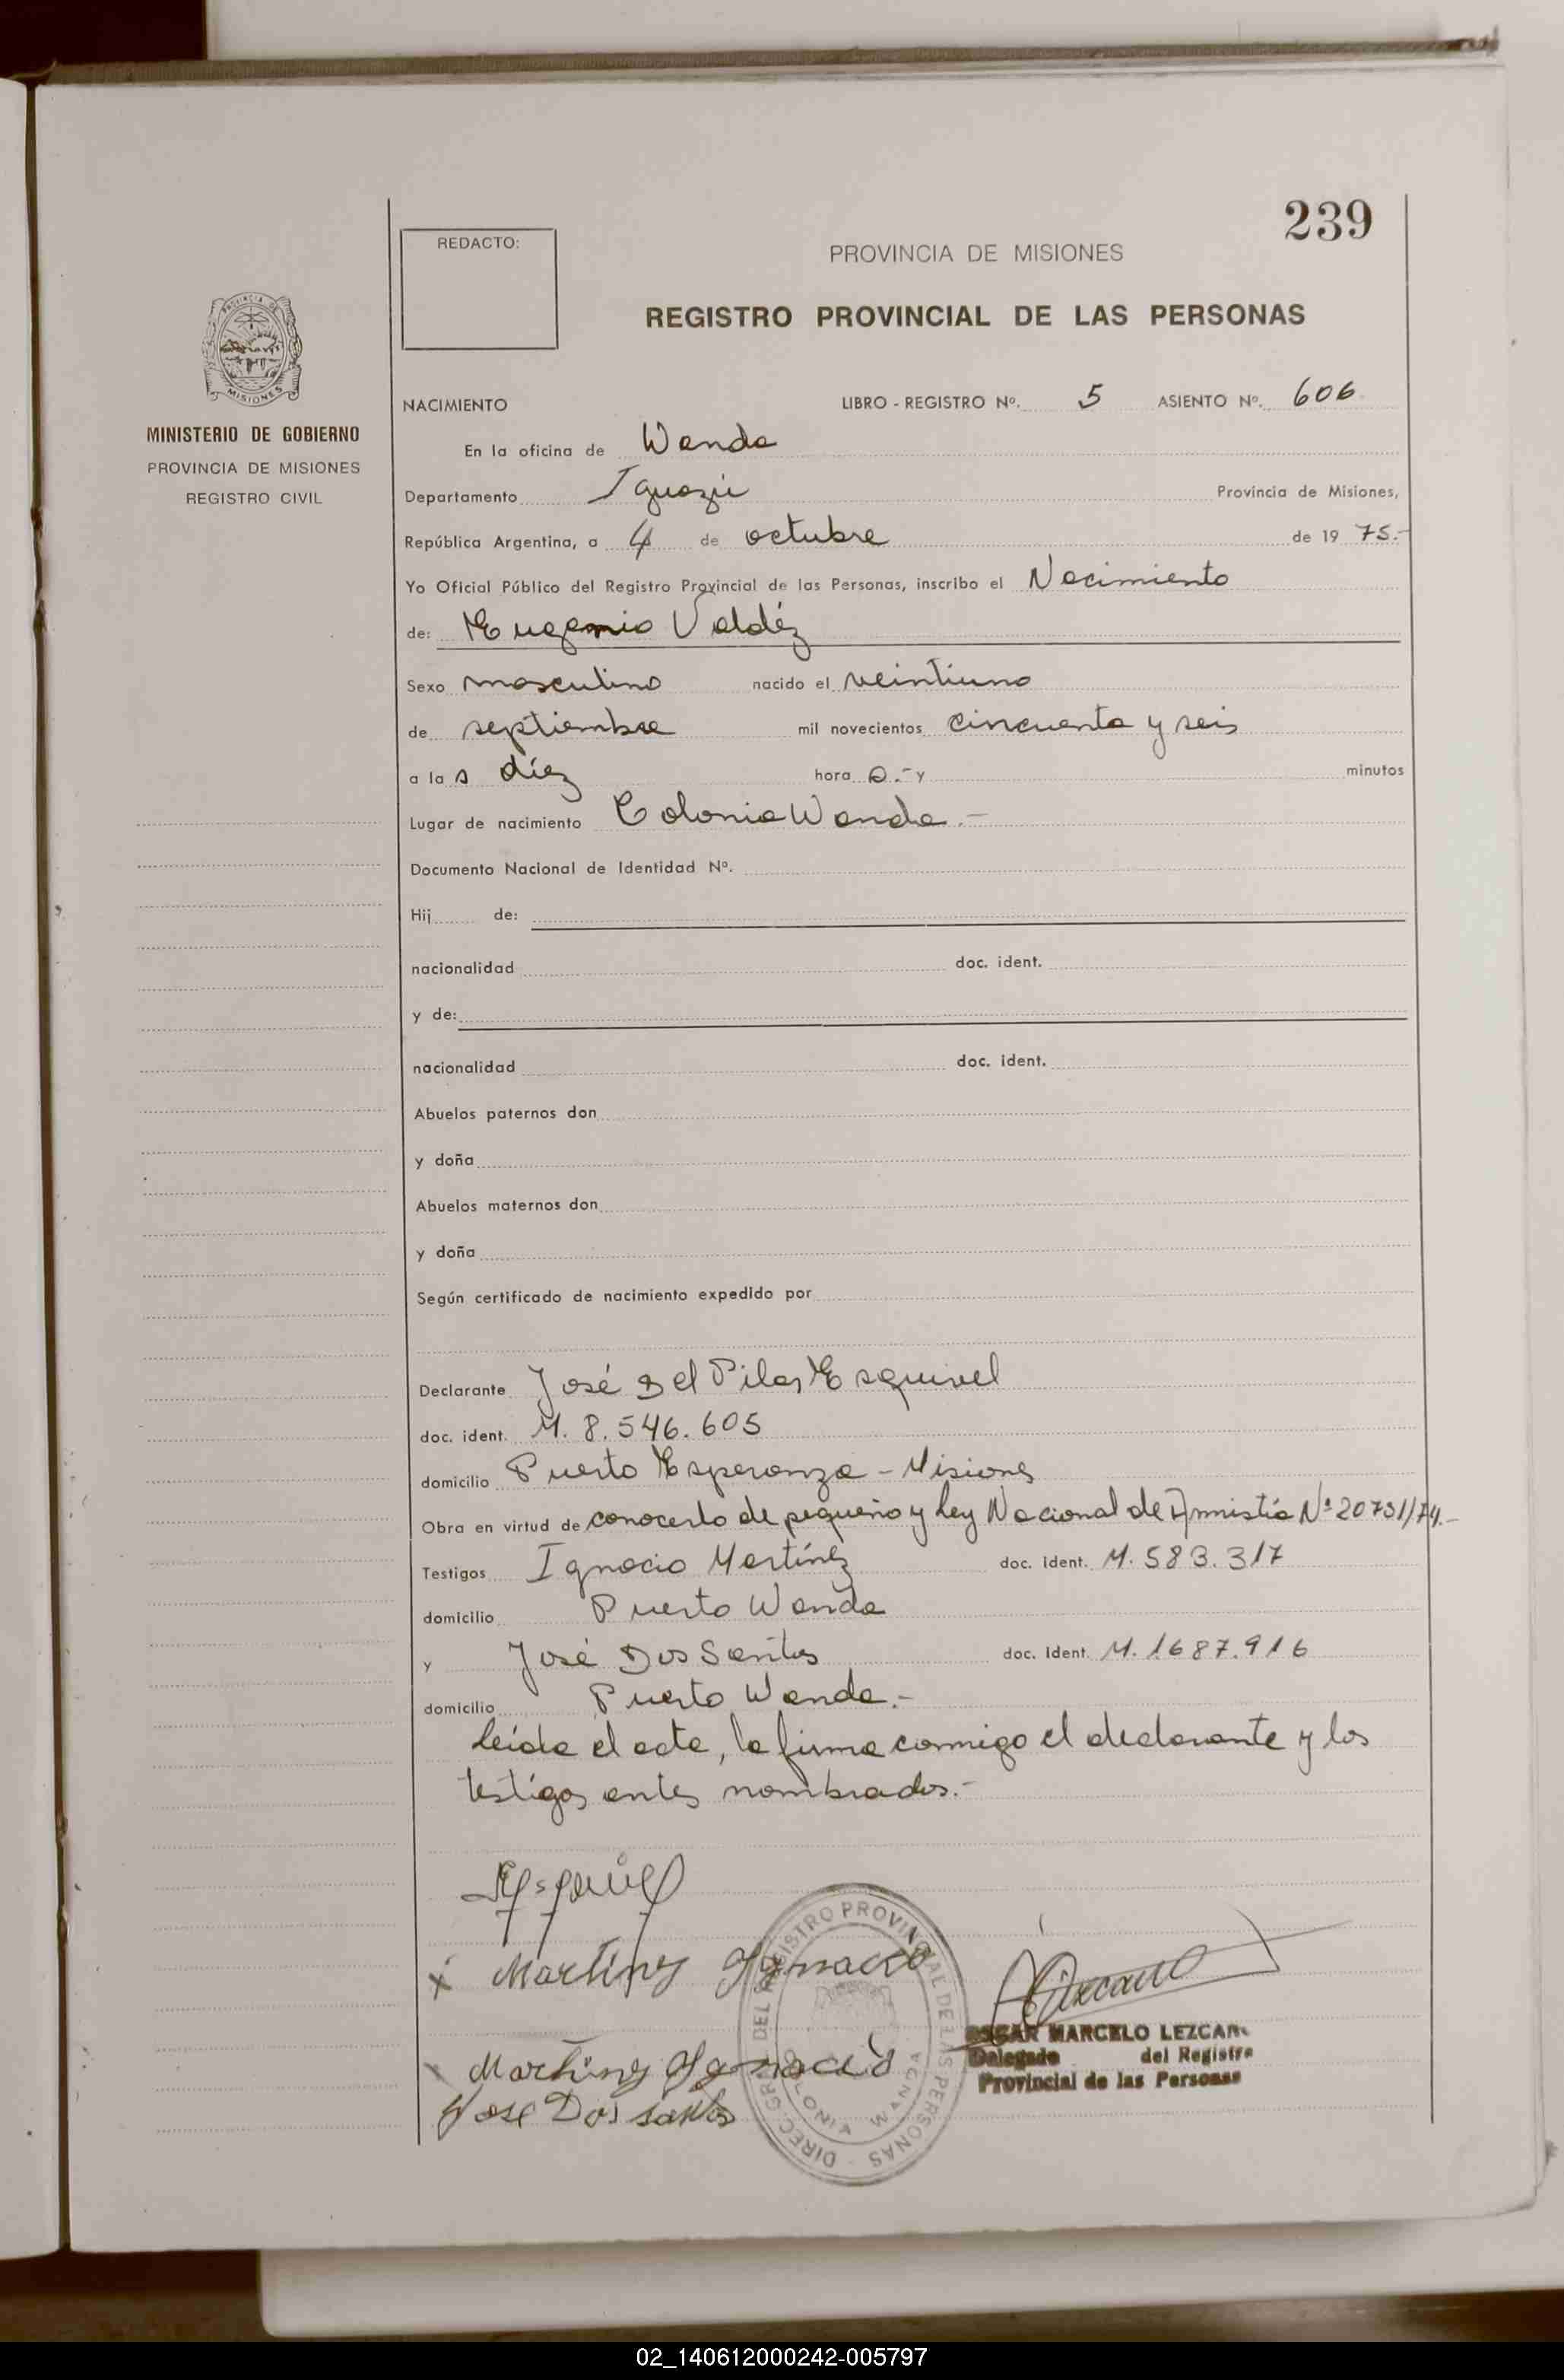 239
REDACTO:
PROVINCIA DE MISIONES
REGISTRO PROVINCIAL DE LAS PERSONAS
PROVINCIA DE
MISIONES
MINISTERIO DE GOBIERNO
PROVINCIA DE MISIONES
REGISTRO CIVIL
NACIMIENTO LIBRO - REGISTRO Nº. 5 ASIENTO Nº. 606
En la oficina de Wanda
Departamento Iguazú Provincia de Misiones,
República Argentina, a 4 de octubre de 19 75.-
Yo Oficial Público del Registro Provincial de las Personas, inscribo el Nacimiento
de: Eugenio Valdéz
Sexo masculino nacido el veintiuno
de septiembre mil novecientos cincuenta y seis
a la s diez hora s.- y minutos
Lugar de nacimiento Colonia Wanda.-
Documento Nacional de Identidad Nº.
Hij de:
nacionalidad doc. ident.
y de:
nacionalidad doc. ident.
Abuelos paternos don
y doña
Abuelos maternos don
y doña
Según certificado de nacimiento expedido por
Declarante José Del Pilar Esquivel
doc. ident. M. 8.546.605
domicilio Puerto Esperanza - Misiones
Obra en virtud de conocerlo de pequeño y Ley Nacional de Amnistía Nº 20751/74.-
Testigos Ignacio Martínez doc. ident. M. 583.317
domicilio Puerto Wanda
y José Dos Santos doc. ident. M. 1687.916
domicilio Puerto Wanda.-
Leída el acta, la firma conmigo el declarante y los
testigos antes nombrados.-
Esquivel
x Martinez Ygnacio
Martinez Ygnacio
Jose Dos santos
DIREC. GRAL. DEL REGISTRO PROVINCIAL DE LAS PERSONAS
COLONIA WANDA
Lezcano
OSCAR MARCELO LEZCANO
Delegado del Registro
Provincial de las Personas
02_140612000242-005797